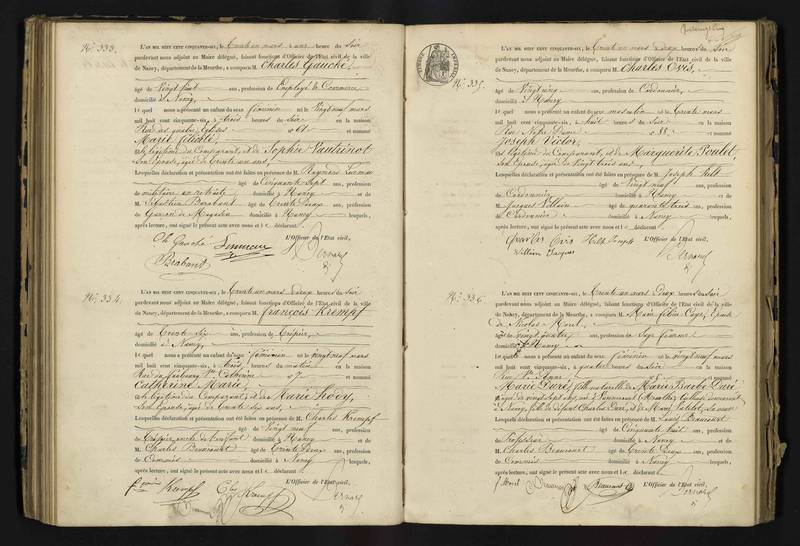 N° 333.
L'AN MIL HUIT CENT CINQUANTE-SIX, le Trente un mars à une heure du Soir
pardevant nous adjoint au Maire délégué, faisant fonctions d'Officier de l'Etat civil de la ville
de Nancy, département de la Meurthe, a comparu M. Charles Gauché,
âgé de Vingt huit ans, profession de Employé de Commerce
domicilié à Nancy,
lequel nous a présenté un enfant du sexe féminin né le Vingt neuf mars
mil huit cent cinquante-six, à trois heures du Soir en la maison
Rue des quatre Eglises n° 61 et nommé
Marie
fils légitime du Comparant, et de Sophie Vautrinot
Son Epouse, âgée de trente un ans,
Lesquelles déclaration et présentation ont été faites en présence de M.
âgé de Cinquante Sept ans, profession
de militaire en retraite domicilié à Nancy et de
M. Sébastien Brabant âgé de trente deux ans, profession
de Garçon de Magasin domicilié à Nancy lesquels,
après lecture, ont signé le présent acte avec nous et le déclarant
Ch Gauché L'Officier de l'Etat civil,
Brabant Bernard
N° 334.
L'AN MIL HUIT CENT CINQUANTE-SIX, le Trente un mars à deux heures du Soir
pardevant nous adjoint au Maire délégué, faisant fonctions d'Officier de l'Etat civil de la ville
de Nancy, département de la Meurthe, a comparu M. françois Krempf
âgé de Trente Six ans, profession de Crépier,
domicilié à Nancy,
lequel nous a présenté un enfant du sexe féminin né le Vingt neuf mars
mil huit cent cinquante-six, à trois heures du matin en la maison
Rue du faubourg Ste Catherine n° 7 et nommé
Catherine Marie,
fils légitime du Comparant, et de Marie
Son Epouse, âgée de trente Six ans,
Lesquelles déclaration et présentation ont été faites en présence de M. Charles Krempf
âgé de Vingt neuf ans, profession
de Crépier, oncle de l'enfant domicilié à Nancy et de
M. Charles Beaucourt âgé de trente deux ans, profession
de Commis domicilié à Nancy lesquels,
après lecture, ont signé le présent acte avec nous et le déclarant
Krempf Krempf L'Officier de l'Etat civil,
Bernard
N° 335.
L'AN MIL HUIT CENT CINQUANTE-SIX, le Trente un mars à deux heures du Soir
pardevant nous adjoint au Maire délégué, faisant fonctions d'Officier de l'Etat civil de la ville
de Nancy, département de la Meurthe, a comparu M. Charles Ovis,
âgé de Vingt cinq ans, profession de Cordonnier,
domicilié à Nancy
lequel nous a présenté un enfant du sexe masculin né le trente mars
mil huit cent cinquante-six, à huit heures du Soir en la maison
Rue Notre Dame n° 88 et nommé
Joseph Victor,
fils légitime du Comparant, et de Marguerite Poulet,
Son Epouse, âgée de Vingt trois ans,
Lesquelles déclaration et présentation ont été faites en présence de M. Joseph Hilt
âgé de Vingt neuf ans, profession
de Cordonnier domicilié à Nancy et de
M. Jacques Villain âgé de quarante trois ans, profession
de Cordonnier domicilié à Nancy lesquels,
après lecture, ont signé le présent acte avec nous et le déclarant
Charles Ovis Hilt Joseph L'Officier de l'Etat civil,
Villain Jacques Bernard
N° 336.
L'AN MIL HUIT CENT CINQUANTE-SIX, le Trente un mars à Deux heures du Soir
pardevant nous adjoint au Maire délégué, faisant fonctions d'Officier de l'Etat civil de la ville
de Nancy, département de la Meurthe, a comparu M. Marie Epouse
de Nicolas Morel,
âgée de Vingt quatre ans, profession de Sage femme
domiciliée à Nancy
lequel nous a présenté un enfant du sexe féminin né le vingt neuf mars
mil huit cent cinquante-six, à quatre heures du Soir en la maison
Rue Ste Anne n° 5 et nommé
Marie Duré, fille naturelle de Marie Barbe Duré
âgée de vingt sept ans, née à (Meurthe)
à Nancy, fille de défunt Charles Duré, et de Marie
Lesquelles déclaration et présentation ont été faites en présence de M. Louis Beaucourt
âgé de Cinquante huit ans, profession
de Professeur domicilié à Nancy et de
M. Charles Beaucourt âgé de trente Deux ans, profession
de Commis domicilié à Nancy lesquels,
après lecture, ont signé le présent acte avec nous et le déclarant
f. Morel Beaucourt L'Officier de l'Etat civil,
Bernard